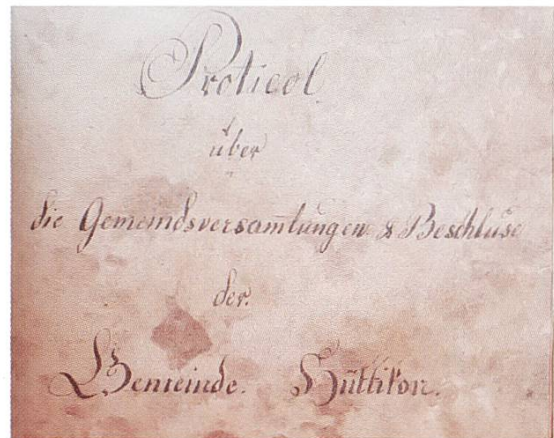 Proticol
über
die Gemeindsversam̄lungen & Beschlüse
der.
Gemeinde. Hüttikon.